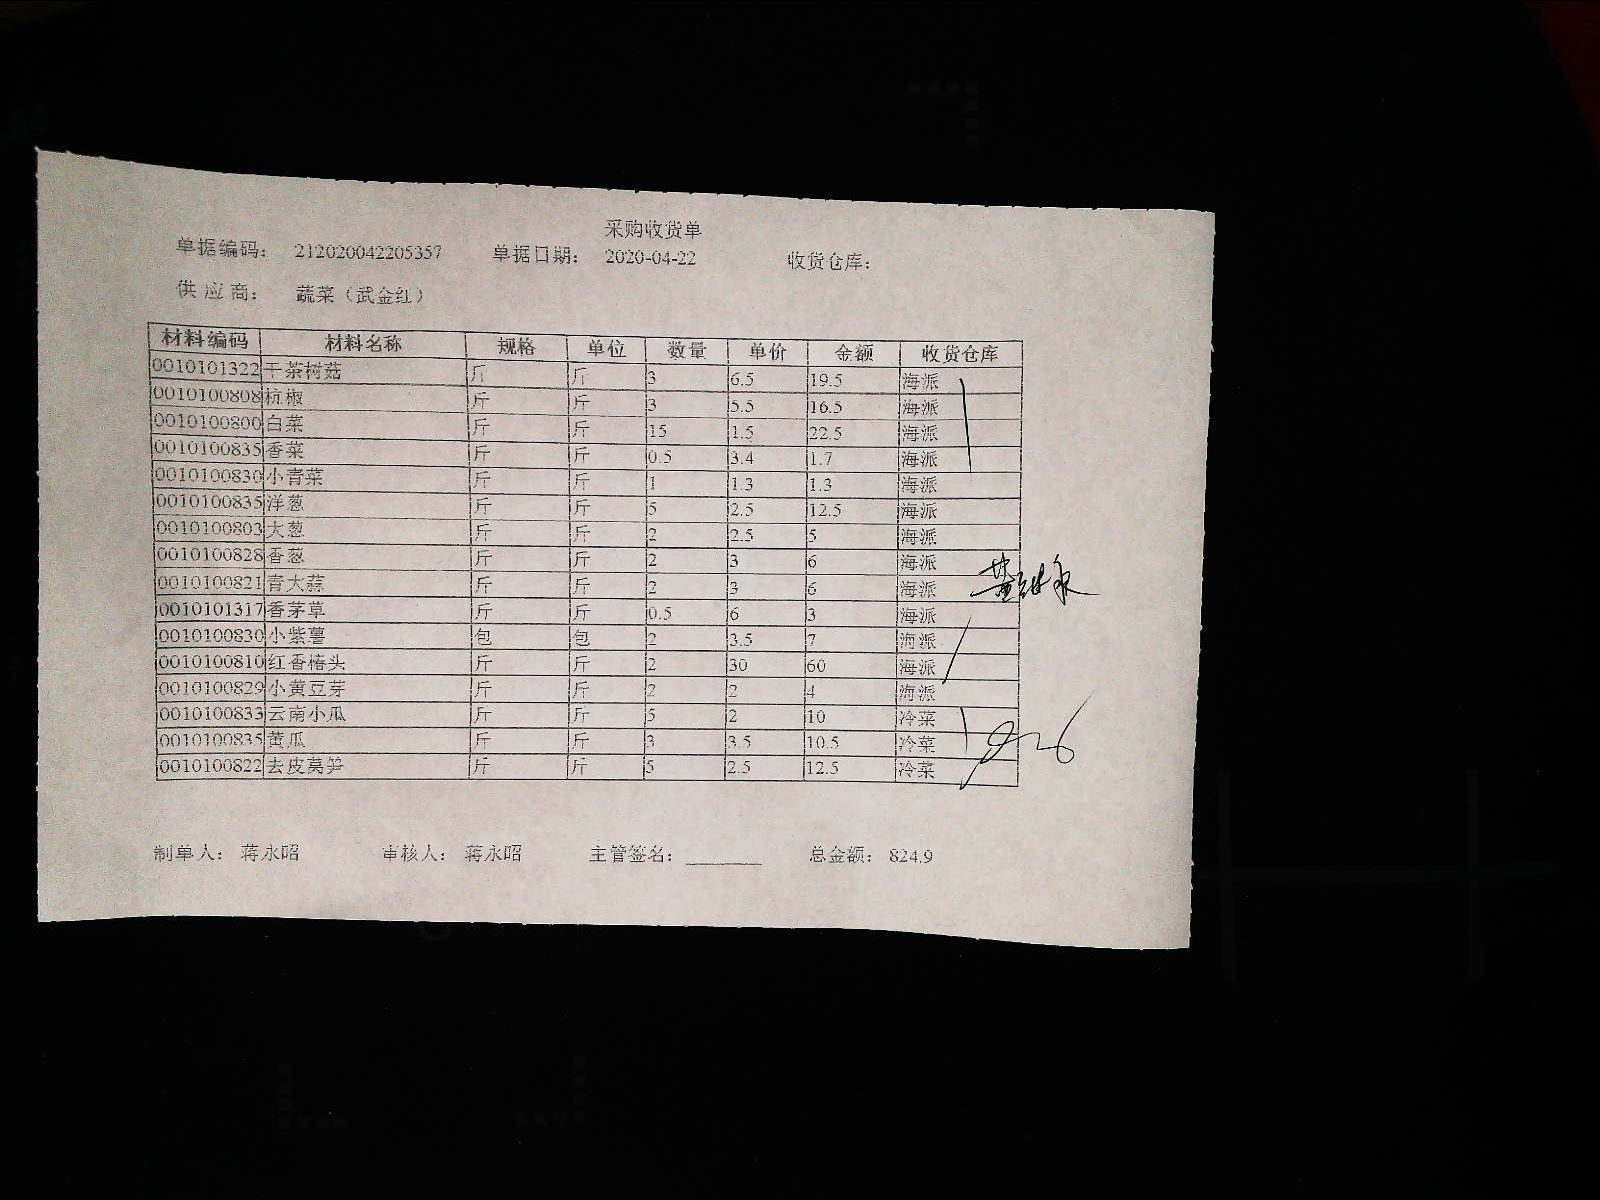 采购收货单
单据编码： 212020042205357 单据日期： 2020-04-22 收货仓库：
供 应 商： 蔬菜（武金红）
材料编码 材料名称 规格 单位 数量 单价 金额 收货仓库
0010101322 干茶树菇 斤 斤 3 6.5 19.5 海派
0010100808 杭椒 斤 斤 3 5.5 16.5 海派
0010100800 白菜 斤 斤 15 1.5 22.5 海派
0010100835 香菜 斤 斤 0.5 3.4 1.7 海派
0010100830 小青菜 斤 斤 1 1.3 1.3 海派
0010100835 洋葱 斤 斤 5 2.5 12.5 海派
0010100803 大葱 斤 斤 2 2.5 5 海派
0010100828 香葱 斤 斤 2 3 6 海派
0010100821 青大蒜 斤 斤 2 3 6 海派
0010101317 香茅草 斤 斤 0.5 6 3 海派
0010100830 小紫薯 包 包 2 3.5 7 海派
0010100810 红香椿头 斤 斤 2 30 60 海派
0010100829 小黄豆芽 斤 斤 2 2 4 海派
0010100833 云南小瓜 斤 斤 5 2 10 冷菜
0010100835 黄瓜 斤 斤 3 3.5 10.5 冷菜
0010100822 去皮莴笋 斤 斤 5 2.5 12.5 冷菜
制单人： 蒋永昭 审核人： 蒋永昭 主管签名： 总金额： 824.9